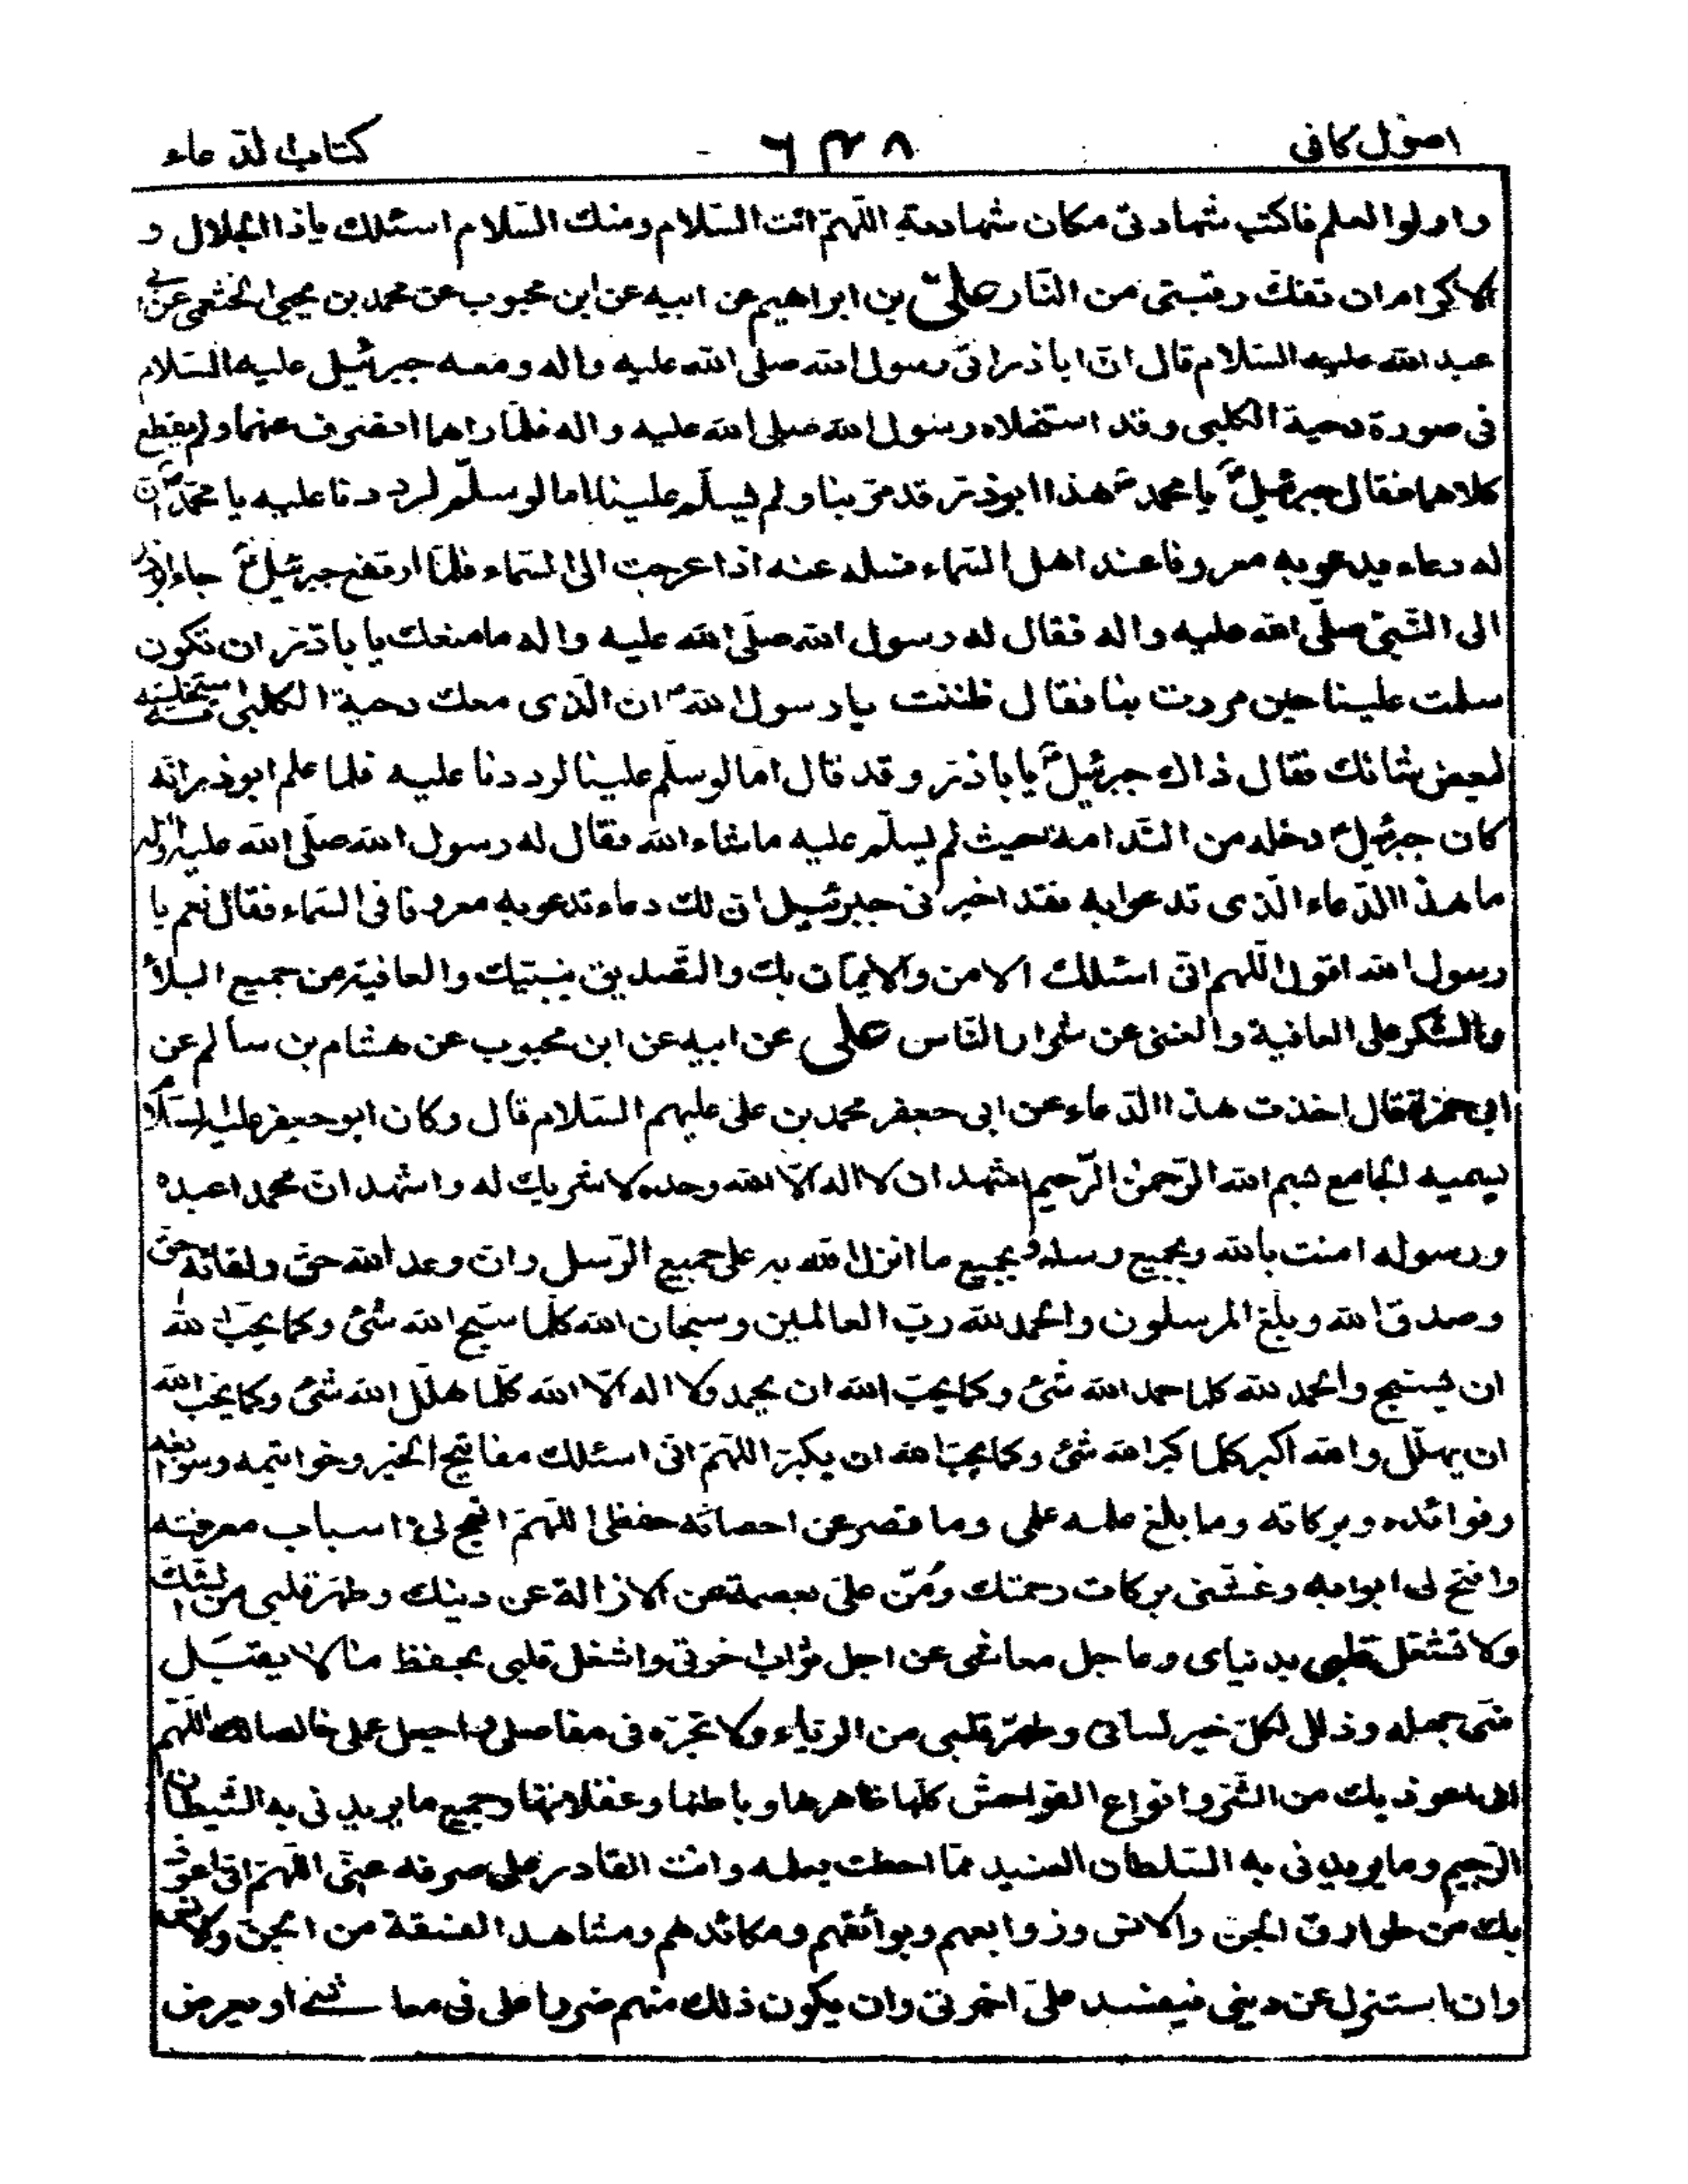 اصول كافى ٦٣٨ كتاب الدعاء
واولوا العلم فاكتب شهادتى مكان شهادته اللّهمّ انت السّلام ومنك السّلام اسئلك ياذا الجلال و
الاكرام ان تفكّ رقبتى من النّار علىّ بن ابراهيم عن ابيه عن ابن محبوب عن محمد بن يحيى الخثعمى عن ابى
عبد الله عليه السّلام قال انّ اباذر اتى رسول الله صلى الله عليه واله ومعه جبرئيل عليه السّلام
فى صورة دحية الكلبى وقد استخلاه رسول الله صلى الله عليه واله فلمّا راهما انصرف عنهما ولم يقطع
كلامهما فقال جبرئيلؑ يا محمدؐ هذا ابوذرّ قد مرّ بنا ولم يسلّم علينا اما لو سلّم لرددنا عليه يا محمّدؐ انّ
له دعاء يدعو به معروفا عند اهل السّماء فسله عنه اذا عرجت الى السّماء فلمّا ارتفع جبرئيلؑ جاء ابوذر
الى النّبىّ صلّى الله عليه واله فقال له رسول الله صلّى الله عليه واله ما منعك يا باذرّ ان تكون
سلمت علينا حين مررت بنا فقال ظننت يا رسول اللهؐ ان الّذى معك دحية الكلبى استخليته
لبعض شانك فقال ذاك جبرئيلؑ يا باذرّ وقد قال اما لو سلّم علينا لرددنا عليه فلما علم ابوذر انّه
كان جبرئيلؑ دخله من النّدامة حيث لم يسلّم عليه ماشاء الله فقال له رسول الله صلّى الله عليه واله
ما هذا الدّعاء الّذى تدعوا به فقد اخبرنى جبرئيل ان لك دعاء تدعو به معروفا فى السّماء فقال نعم يا
رسول الله اقول اللّهم انّى اسئلك الامن والايمان بك والتّصديق بنبيّك والعافية من جميع البلاء
والشّكر على العافية والغنى عن شرار النّاس على عن ابيه عن ابن محبوب عن هشام بن سالم عن
ابى حمزة قال اخذت هذا الدّعاء عن ابى جعفر محمد بن على عليهم السّلام قال وكان ابو جعفر عليه السّلام
يسميه الجامع بسم الله الرّحمن الرّحيم اشهد ان لا اله الّا الله وحده لا شريك له واشهد انّ محمدا عبده
ورسوله امنت بالله وبجميع رسله وبجميع ما انزل الله به على جميع الرّسل وانّ وعد الله حق ولقائه حق
وصدق الله وبلّغ المرسلون والحمد لله ربّ العالمين وسبحان الله كلّما سبّح الله شئ وكما يحبّ الله
ان يسبّح والحمد لله كلما حمد الله شئ وكما يحبّ الله ان يحمد ولا اله الّا الله كلّما هلّل الله شئ وكما يحبّ الله
ان يهلّل والله اكبر كلّما كبر الله شئ وكما يحبّ الله ان يكبّر اللّهمّ انّى اسئلك مفاتيح الخير وخواتيمه وسوابغه
وفوائده وبركاته وما بلغ علمه علمى وما قصر عن احصائه حفظى اللّهمّ انهج لى اسباب معرفته
وافتح لى ابوابه وغشّنى بركات رحمتك ومُنّ علىّ بعصمة عن الازالة عن دينك وطهّر قلبى من الشّكّ
ولا تشغل قلبى بدنياى وعاجل معاشى عن اجل ثواب اخرتى واشغل قلبى بحفظ مالا يقبل
منّى جهله وذلل لكلّ خير لسانى وطهّر قلبى من الرّياء ولا تجره فى مفاصلى واجعل عملى خالصا لك اللّهمّ
انى اعوذ بك من الشّرّ وانواع الفواحش كلّها ظاهرها وباطنها وغفلاتها وجميع ما يريدنى به الشّيطان
الرّجيم وما يريدنى به السّلطان العنيد ممّا احطت بعلمه وانت القادر على صرفه عنّى اللّهمّ انّى اعوذ
بك من طوارق الجن والانس وزوابعهم وبوائقهم ومكائدهم ومشاهد الفسقة من الجنّ والانس
وان استزلّ عن دينى فيفسد علىّ اخرتى وان يكون ذلك منهم ضررا على فى معاشى او يعرض